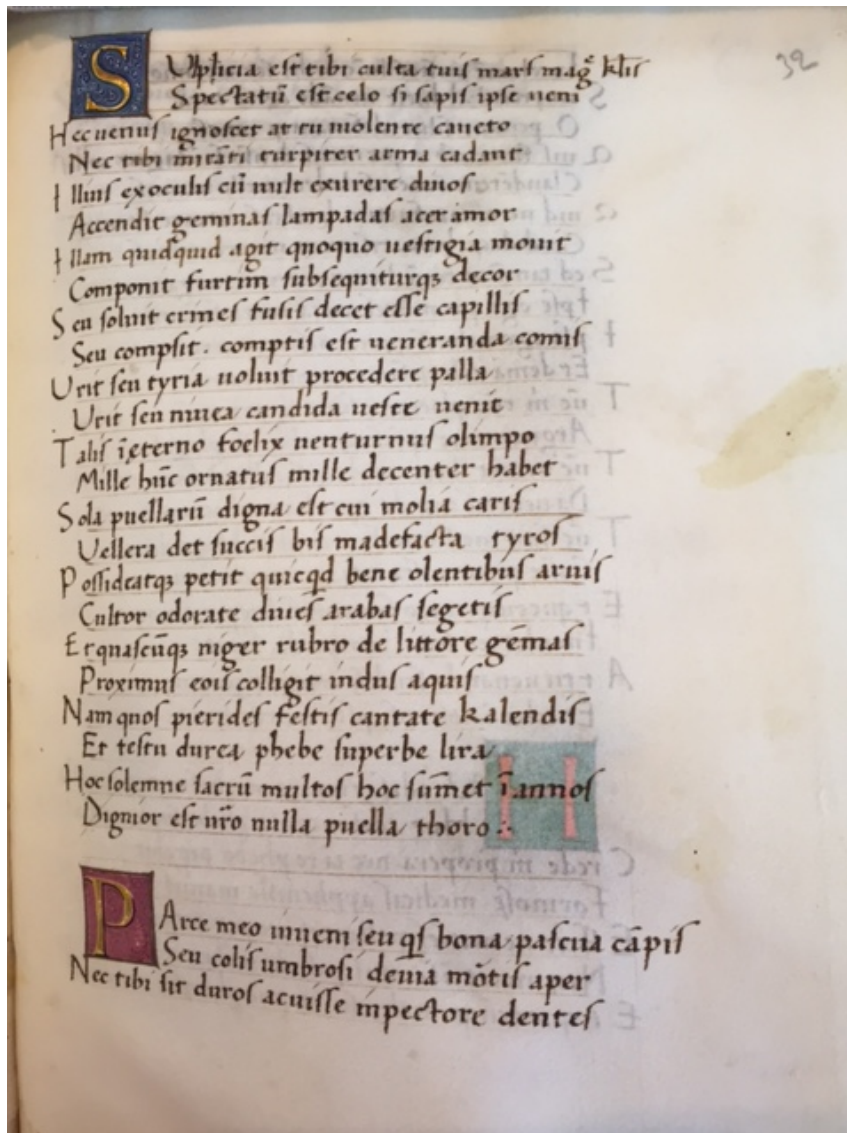 32
SUlpitia est tibi culta tuis mars mag̃ kl̃is
Spectatū est celo si sapis ipse veni
Hec venus ignoscet at tu violente caveto
Nec tibi mirāti turpiter arma cadant
Illius ex oculis cū vult exurere divos
Accendit geminas lampadas acer amor
Illam quidquid agit quoquo vestigia movit
Componit furtim subsequiturqꝫ decor
Seu soluit crines fusis decet esse capillis
Seu compsit . comptis est veneranda comis
Urit seu tyria voluit procedere palla
Urit seu nivea candida veste venit
Talis ī eterno foelix venturnus olimpo
Mille hūc ornatus mille decenter habet
Sola puellarū digna est cui molia caris
Vellera det succis bis madefacta tyros
Possideatqꝫ petit quicqd bene olentibus arvis
Cultor odorate dives arabas segetis
Et quascūqꝫ niger rubro de littore gēmas
Proximus eois colligit indus aquis
Nam quos pierides festis cantate kalendis
Et testu durea phebe superbe lira
Hoc solemne sacrū multos hoc sūmet ī annos
Dignior est nr̃o nulla puella thoro
PArce meo iuveni seu qͥs bona pascua cāpis
Seu colis umbrosi devia mōtis aper
Nec tibi sit duros acuisse inpectore dentes